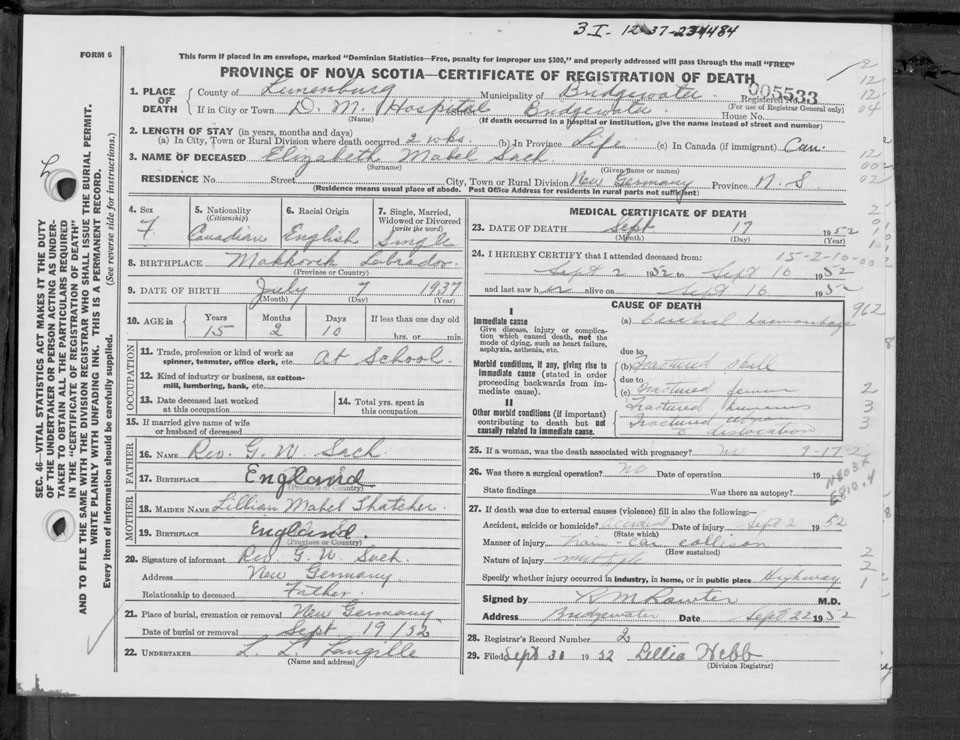 3 I- 12-37-234484
FORM 6
This form if placed in an envelope, marked "Dominion Statistics—Free, penalty for improper use $300," and properly addressed will pass through the mail "FREE"
PROVINCE OF NOVA SCOTIA—CERTIFICATE OF REGISTRATION OF DEATH
005533
1. PLACE OF DEATH County of Lunenburg Municipality of Bridgewater Registered No.
(For use of Registrar General only)
If in City or Town D. M. Hospital Bridgewater House No.
(Name) (If death occurred in a hospital or institution, give the name instead of street and number)
2. LENGTH OF STAY (in years, months and days)
(a) In City, Town or Rural Division where death occurred 2 wks. (b) In Province Life (c) In Canada (if immigrant) Can.
3. NAME OF DECEASED Elizabeth Mabel Sach
(Surname) (Given name or names)
RESIDENCE No. Street City, Town or Rural Division New Germany Province N.S
(Residence means usual place of abode. Post Office Address for residents in rural parts not sufficient)
4. Sex F
5. Nationality (Citizenship) Canadian
6. Racial Origin English
7. Single, Married, Widowed or Divorced (write the word) Single
8. BIRTHPLACE Makkovik Labrador
(Province or Country)
9. DATE OF BIRTH July 7 1937
(Month) (Day) (Year)
10. AGE in Years Months Days If less than one day old
15 2 10 hrs. or min.
OCCUPATION
11. Trade, profession or kind of work as spinner, teamster, office clerk, etc. At School.
12. Kind of industry or business, as cotton-mill, lumbering, bank, etc.
13. Date deceased last worked at this occupation
14. Total yrs. spent in this occupation
15. If married give name of wife or husband of deceased
FATHER
16. NAME Rev. G. W. Sach.
17. BIRTHPLACE England
(Province or Country)
MOTHER
18. MAIDEN NAME Lillian Mabel Thatcher.
19. BIRTHPLACE England.
(Province or Country)
20. Signature of informant Rev. G. W. Sach.
Address New Germany
Relationship to deceased Father.
21. Place of burial, cremation or removal New Germany
Date of burial or removal Sept 19/52
22. UNDERTAKER L. L. Langille
(Name and address)
MEDICAL CERTIFICATE OF DEATH
23. DATE OF DEATH Sept 17 1952
(Month) (Day) (Year)
24. I HEREBY CERTIFY that I attended deceased from:
15-2-10
Sept 2 1952 to Sept 16 1952
and last saw her alive on Sept 16 1952
CAUSE OF DEATH
962
I
Immediate cause
Give disease, injury or complication which caused death, not the mode of dying, such as heart failure, asphyxia, asthenia, etc.
(a) Cerebral haemorrhage
due to
Morbid conditions, if any, giving rise to immediate cause (stated in order proceeding backwards from immediate cause).
(b) Fractured skull
due to
(c) Fractured femur
II
Other morbid conditions (if important) contributing to death but not causally related to immediate cause.
Fractured humerus
Fractured
c dislocation
25. If a woman, was the death associated with pregnancy? No 9-17-2
26. Was there a surgical operation? No Date of operation 19
State findings Was there an autopsy?
N803X
E810.4
27. If death was due to external causes (violence) fill in also the following:—
Accident, suicide or homicide? Accident Date of injury Sept 2 1952
(State which)
Manner of injury train-car collison
(How sustained)
Nature of injury multiple
Specify whether injury occurred in industry, in home, or in public place Highway
Signed by R M Rowter M.D.
Address Bridgewater Date Sept 22 1952
28. Registrar's Record Number 2
29. Filed Sept 30 1952 Lillia Webb
(Division Registrar)
SEC. 46—VITAL STATISTICS ACT MAKES IT THE DUTY
OF THE UNDERTAKER OR PERSON ACTING AS UNDERTAKER TO OBTAIN ALL THE PARTICULARS REQUIRED
IN THE "CERTIFICATE OF REGISTRATION OF DEATH"
AND TO FILE THE SAME WITH THE DIVISION REGISTRAR WHO SHALL ISSUE THE BURIAL PERMIT.
WRITE PLAINLY WITH UNFADING INK. THIS IS A PERMANENT RECORD.
Every item of information should be carefully supplied. (See reverse side for instructions.)